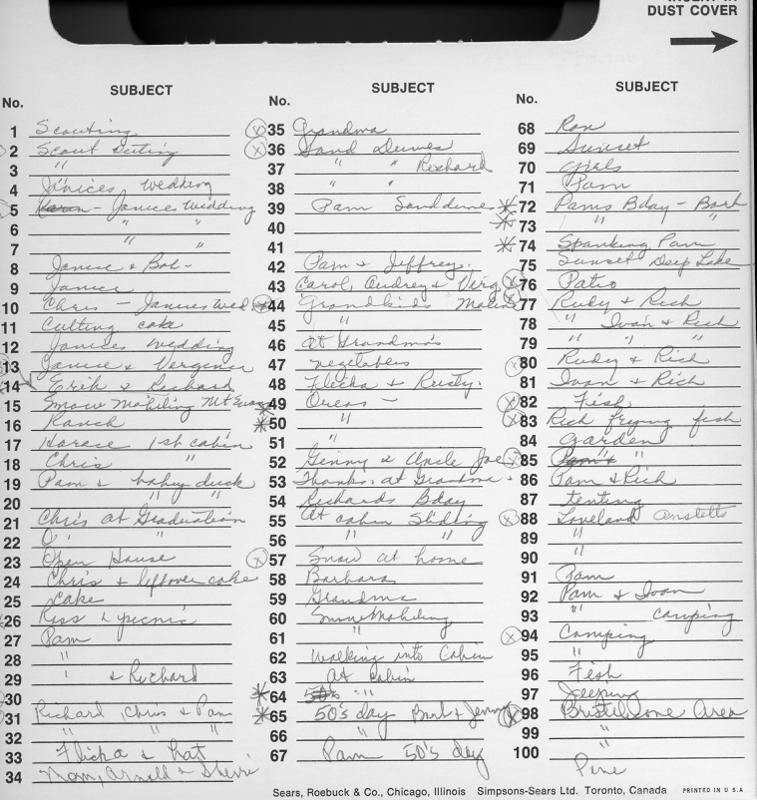 INSERT IN
DUST COVER
No. SUBJECT
1 Scouting
2 Scout Outing
3 "
4 Janices Wedding
5 Karen - Janices Wedding
6 " "
7 " "
8 Janice & Bob -
9 Janice
10 Chris - Janices Wed
11 Cutting cake
12 Janices wedding
13 Janice & Verginia
14 Erik & Richard
15 Snow Mobiling Mt Evans
16 Ranch
17 Horace 1st cabin
18 Chris "
19 Pam & baby duck
20 " "
21 Chris at Graduation
22 " "
23 Open House
24 Chris & leftover cake
25 cake
26 Kiss & picnic
27 Pam
28 "
29 " & Richard
30
31 Richard, Chris & Pam
32 " " "
33 Flicka & hat
34 Mom, Arnold & Sherri
No. SUBJECT
35 Grandma
36 Sand Dunes
37 " " Richard
38 " "
39 Pam Sand dune
40
41
42 Pam & Jeffrey.
43 Carol, Audrey & Verg
44 Grandkids
45 "
46 at Grandma's
47 vegetables
48 Flicka & Rusty.
49 Oreos -
50 "
51 "
52 Ginny & Uncle Joe
53 Thanks. at Grandma
54 Richards Bday
55 At cabin Sliding
56 " " "
57 Snow at home
58 Barbara
59 Grandma
60 Snow Mobiling
61 "
62 Walking into Cabin
63 at Cabin
64 50's " "
65 50's day Barb & Jenny
66 "
67 Pam 50's day
No. SUBJECT
68 Ron
69 Sunset
70 girls
71 Pam
72 Pams Bday - Barb
73 " "
74 Spanking Pam
75 Sunset Deep Lake
76 Patio
77 Rudy & Rich
78 " Ivan & Rich
79 " " "
80 Rudy & Rich
81 Ivan & Rich
82 Fish
83 Rich frying fish
84 Garden
85 Pam & " "
86 Pam & Rich
87 tenting
88 Loveland Anstetts
89 "
90 "
91 Pam
92 Pam & Ivan
93 " camping
94 Camping
95 "
96 Fish
97 Jeeping
98 Bristlecone Area
99 "
100 "
Pine
Sears, Roebuck & Co., Chicago, Illinois Simpsons-Sears Ltd. Toronto, Canada PRINTED IN U S A